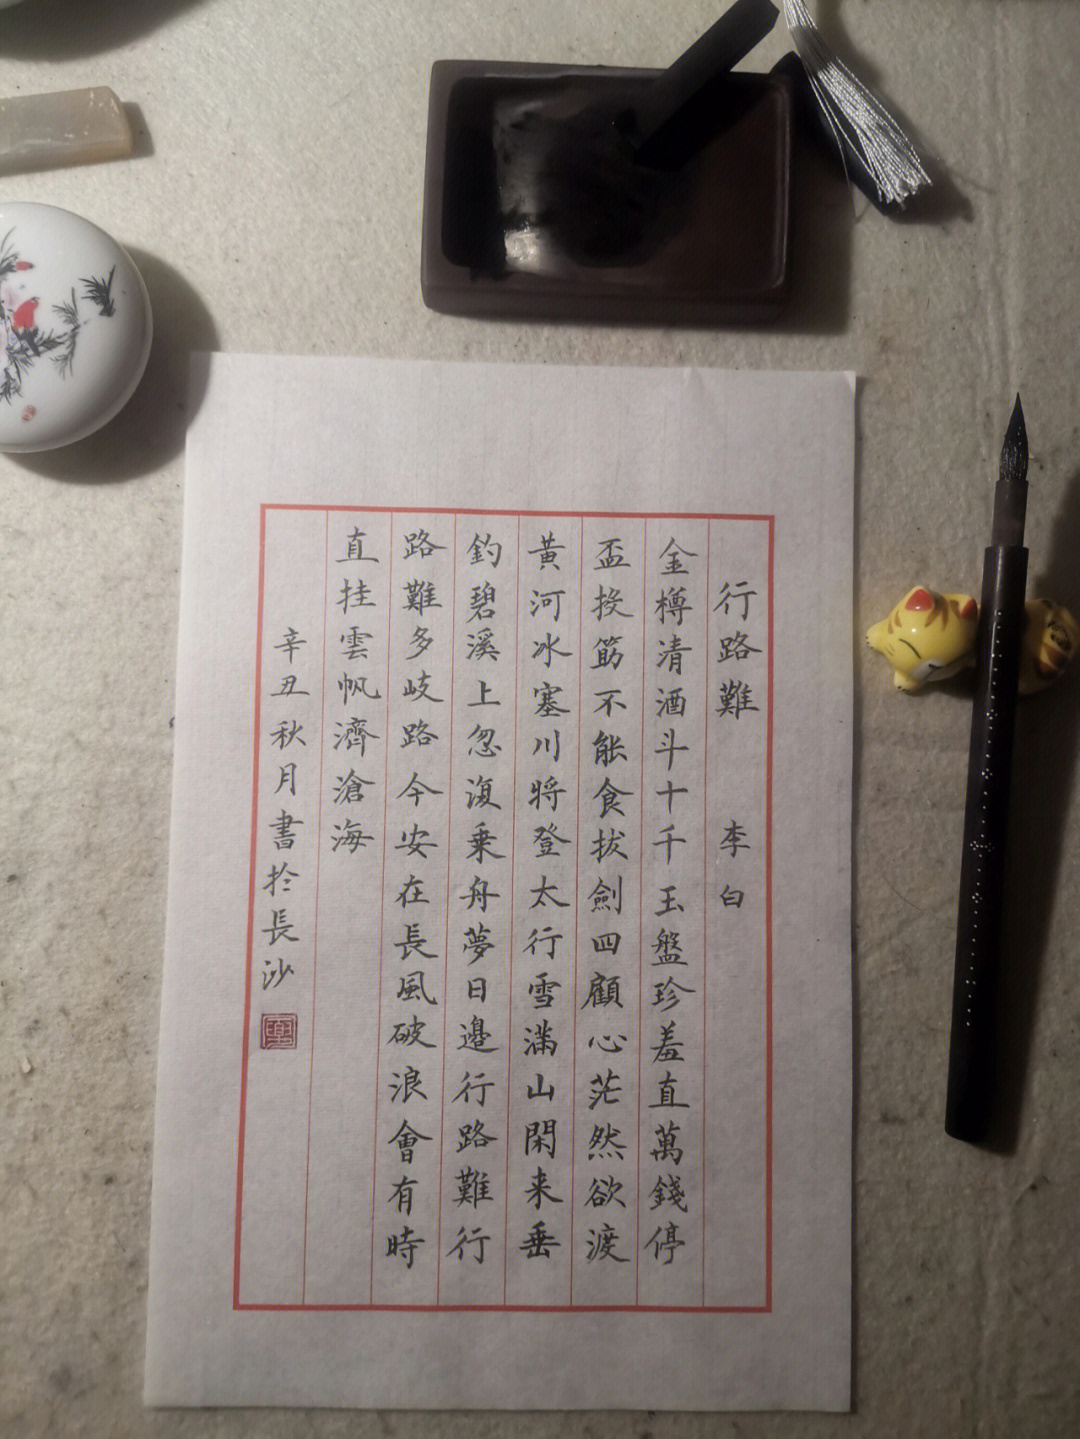 行路難 李白
金樽清酒斗十千玉盤珍羞直萬錢停
盃投筯不能食拔劍四顧心茫然欲渡
黃河冰塞川將登太行雪滿山閑来垂
釣碧溪上忽復乗舟夢日邊行路難行
路難多岐路今安在長風破浪會有時
直挂雲帆濟滄海
辛丑秋月書於長沙